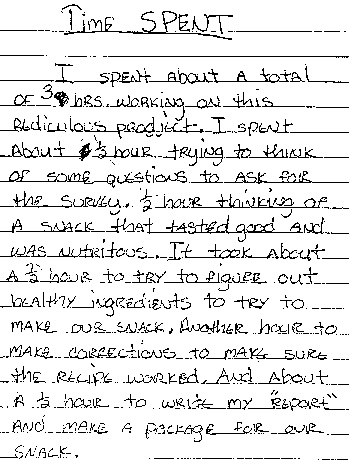 Time SPENT
I SPENT ABOUT A total
OF 3 hrs. working on this
rediculous prodject. I SPENT
About ½ hour trying to think
OF some questions to ASK FOR
the survey. ½ hour thinking OF
A SNACK that tasted good AND
WAS nutritous. It took About
A ½ hour to try to Figure out
healthy ingredients to try to
MAKE our SNACK. Another hour to
MAKE corrections to MAKE SURE
the recipe worked. And About
A ½ hour to write my "REPORT"
AND MAKE A package FOR our
SNACK.